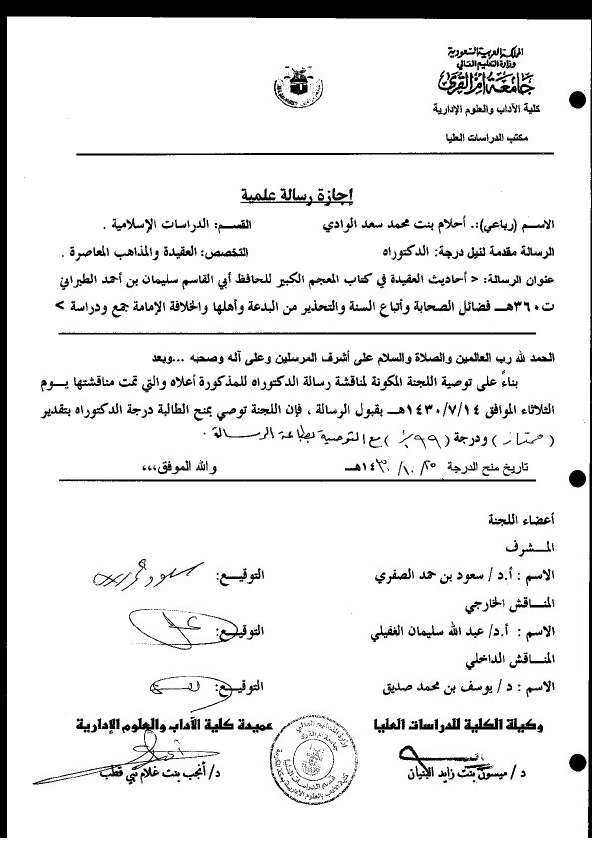 المملكة العربية السعودية
وزارة التعليم العالي
جامعة أم القرى
كلية الآداب والعلوم الإدارية
مكتب الدراسات العليا
إجازة رسالة علمية
الاسم (رباعي): أحلام بنت محمد سعد الوادي القسم: الدراسات الإسلامية .
الرسالة مقدمة لنيل درجة: الدكتوراه التخصص: العقيدة والمذاهب المعاصرة .
عنوان الرسالة: < أحاديث العقيدة في كتاب المعجم الكبير للحافظ أبي القاسم سليمان بن أحمد الطبراني
ت٣٦٠هـ فضائل الصحابة وأتباع السنة والتحذير من البدعة وأهلها والخلافة الإمامة جمع ودراسة >
الحمد لله رب العالمين والصلاة والسلام على أشرف المرسلين وعلى آله وصحبه ...وبعد
بناءً على توصية اللجنة المكونة لمناقشة رسالة الدكتوراه للمذكورة أعلاه والتي تمت مناقشتها يـوم
الثلاثاء الموافق ١٤٣٠/٧/١٤هـ بقبول الرسالة ، فإن اللجنة توصي بمنح الطالبة درجة الدكتوراه بتقدير
( ممتاز ) ودرجة ( ٩٩٪ ) مع التوصية بطباعة الرسالة .
تاريخ منح الدرجة ٢٥ / ١٠ / ١٤٣٠هـ والله الموفق،،،
أعضاء اللجنة
المشرف
الاسم : أ.د / سعود بن حمد الصقري التوقيع:
المناقش الخارجي
الاسم : أ.د/ عبد الله سليمان الغفيلي التوقيع:
المناقش الداخلي
الاسم : د / يوسف بن محمد صديق التوقيع:
وكيلة الكلية للدراسات العليا عميدة كلية الآداب والعلوم الإدارية
د / ميسون بنت زايد البنيان د/ أنجب بنت غلام نبي قطب